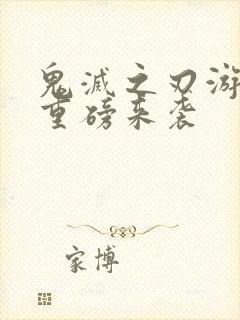 鬼滅之刃游
重磅来袭
家博